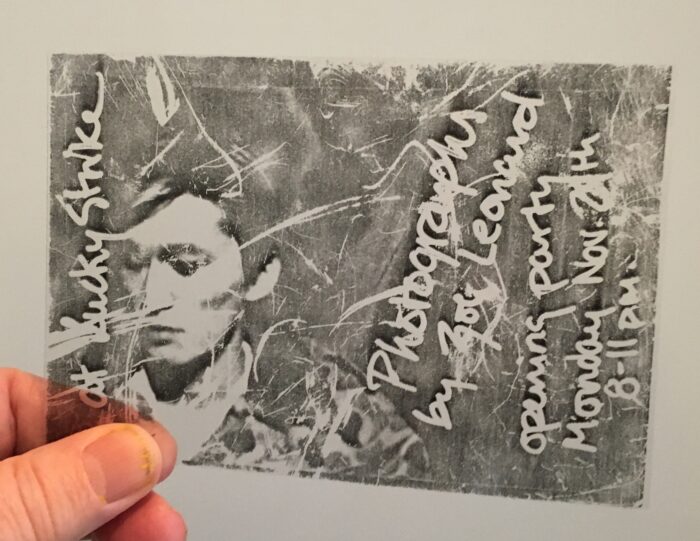 at Lucky Strike
Photographs
by Zoe Leonard
opening party
Monday Nov.
8-11 pm.